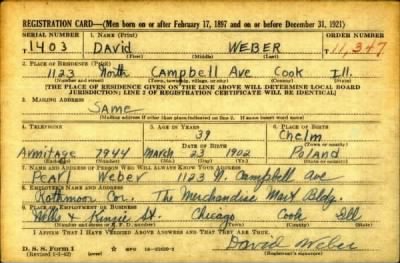 REGISTRATION CARD—(Men born on or after February 17, 1897 and on or before December 31, 1921)
SERIAL NUMBER 1. NAME (Print) ORDER NUMBER
1403 DAVID WEBER 11,347
(First) (Middle) (Last)
2. PLACE OF RESIDENCE (Print)
1123 North Campbell Ave Cook Ill.
(Number and street) (Town, township, village, or city) (County) (State)
[THE PLACE OF RESIDENCE GIVEN ON THE LINE ABOVE WILL DETERMINE LOCAL BOARD
JURISDICTION; LINE 2 OF REGISTRATION CERTIFICATE WILL BE IDENTICAL]
3. MAILING ADDRESS
SAME
[Mailing address if other than place indicated on line 2. If same insert word same]
4. TELEPHONE 5. AGE IN YEARS 6. PLACE OF BIRTH
39 Chelm
DATE OF BIRTH (Town or county)
Armitage 7944 March 23 1902 Poland
(Exchange) (Number) (Mo.) (Day) (Yr.) (State or country)
7. NAME AND ADDRESS OF PERSON WHO WILL ALWAYS KNOW YOUR ADDRESS
Pearl Weber 1123 N. Campbell Ave
8. EMPLOYER'S NAME AND ADDRESS
Rothmoor Cor. The Merchandise Mart Bldg.
9. PLACE OF EMPLOYMENT OR BUSINESS
Wells & Kinzie St. Chicago Cook Ill
(Number and street or R. F. D. number) (Town) (County) (State)
I AFFIRM THAT I HAVE VERIFIED ABOVE ANSWERS AND THAT THEY ARE TRUE.
D. S. S. Form 1
David Weber
(Registrant's signature)